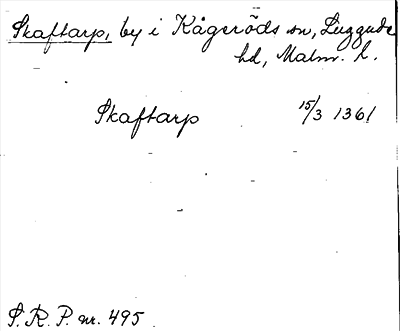 Skaftarp, by i Kågeröds sn, Luggude
hd, Malm. l.
Skaftarp 15/3 1361
S. R. P. nr. 495